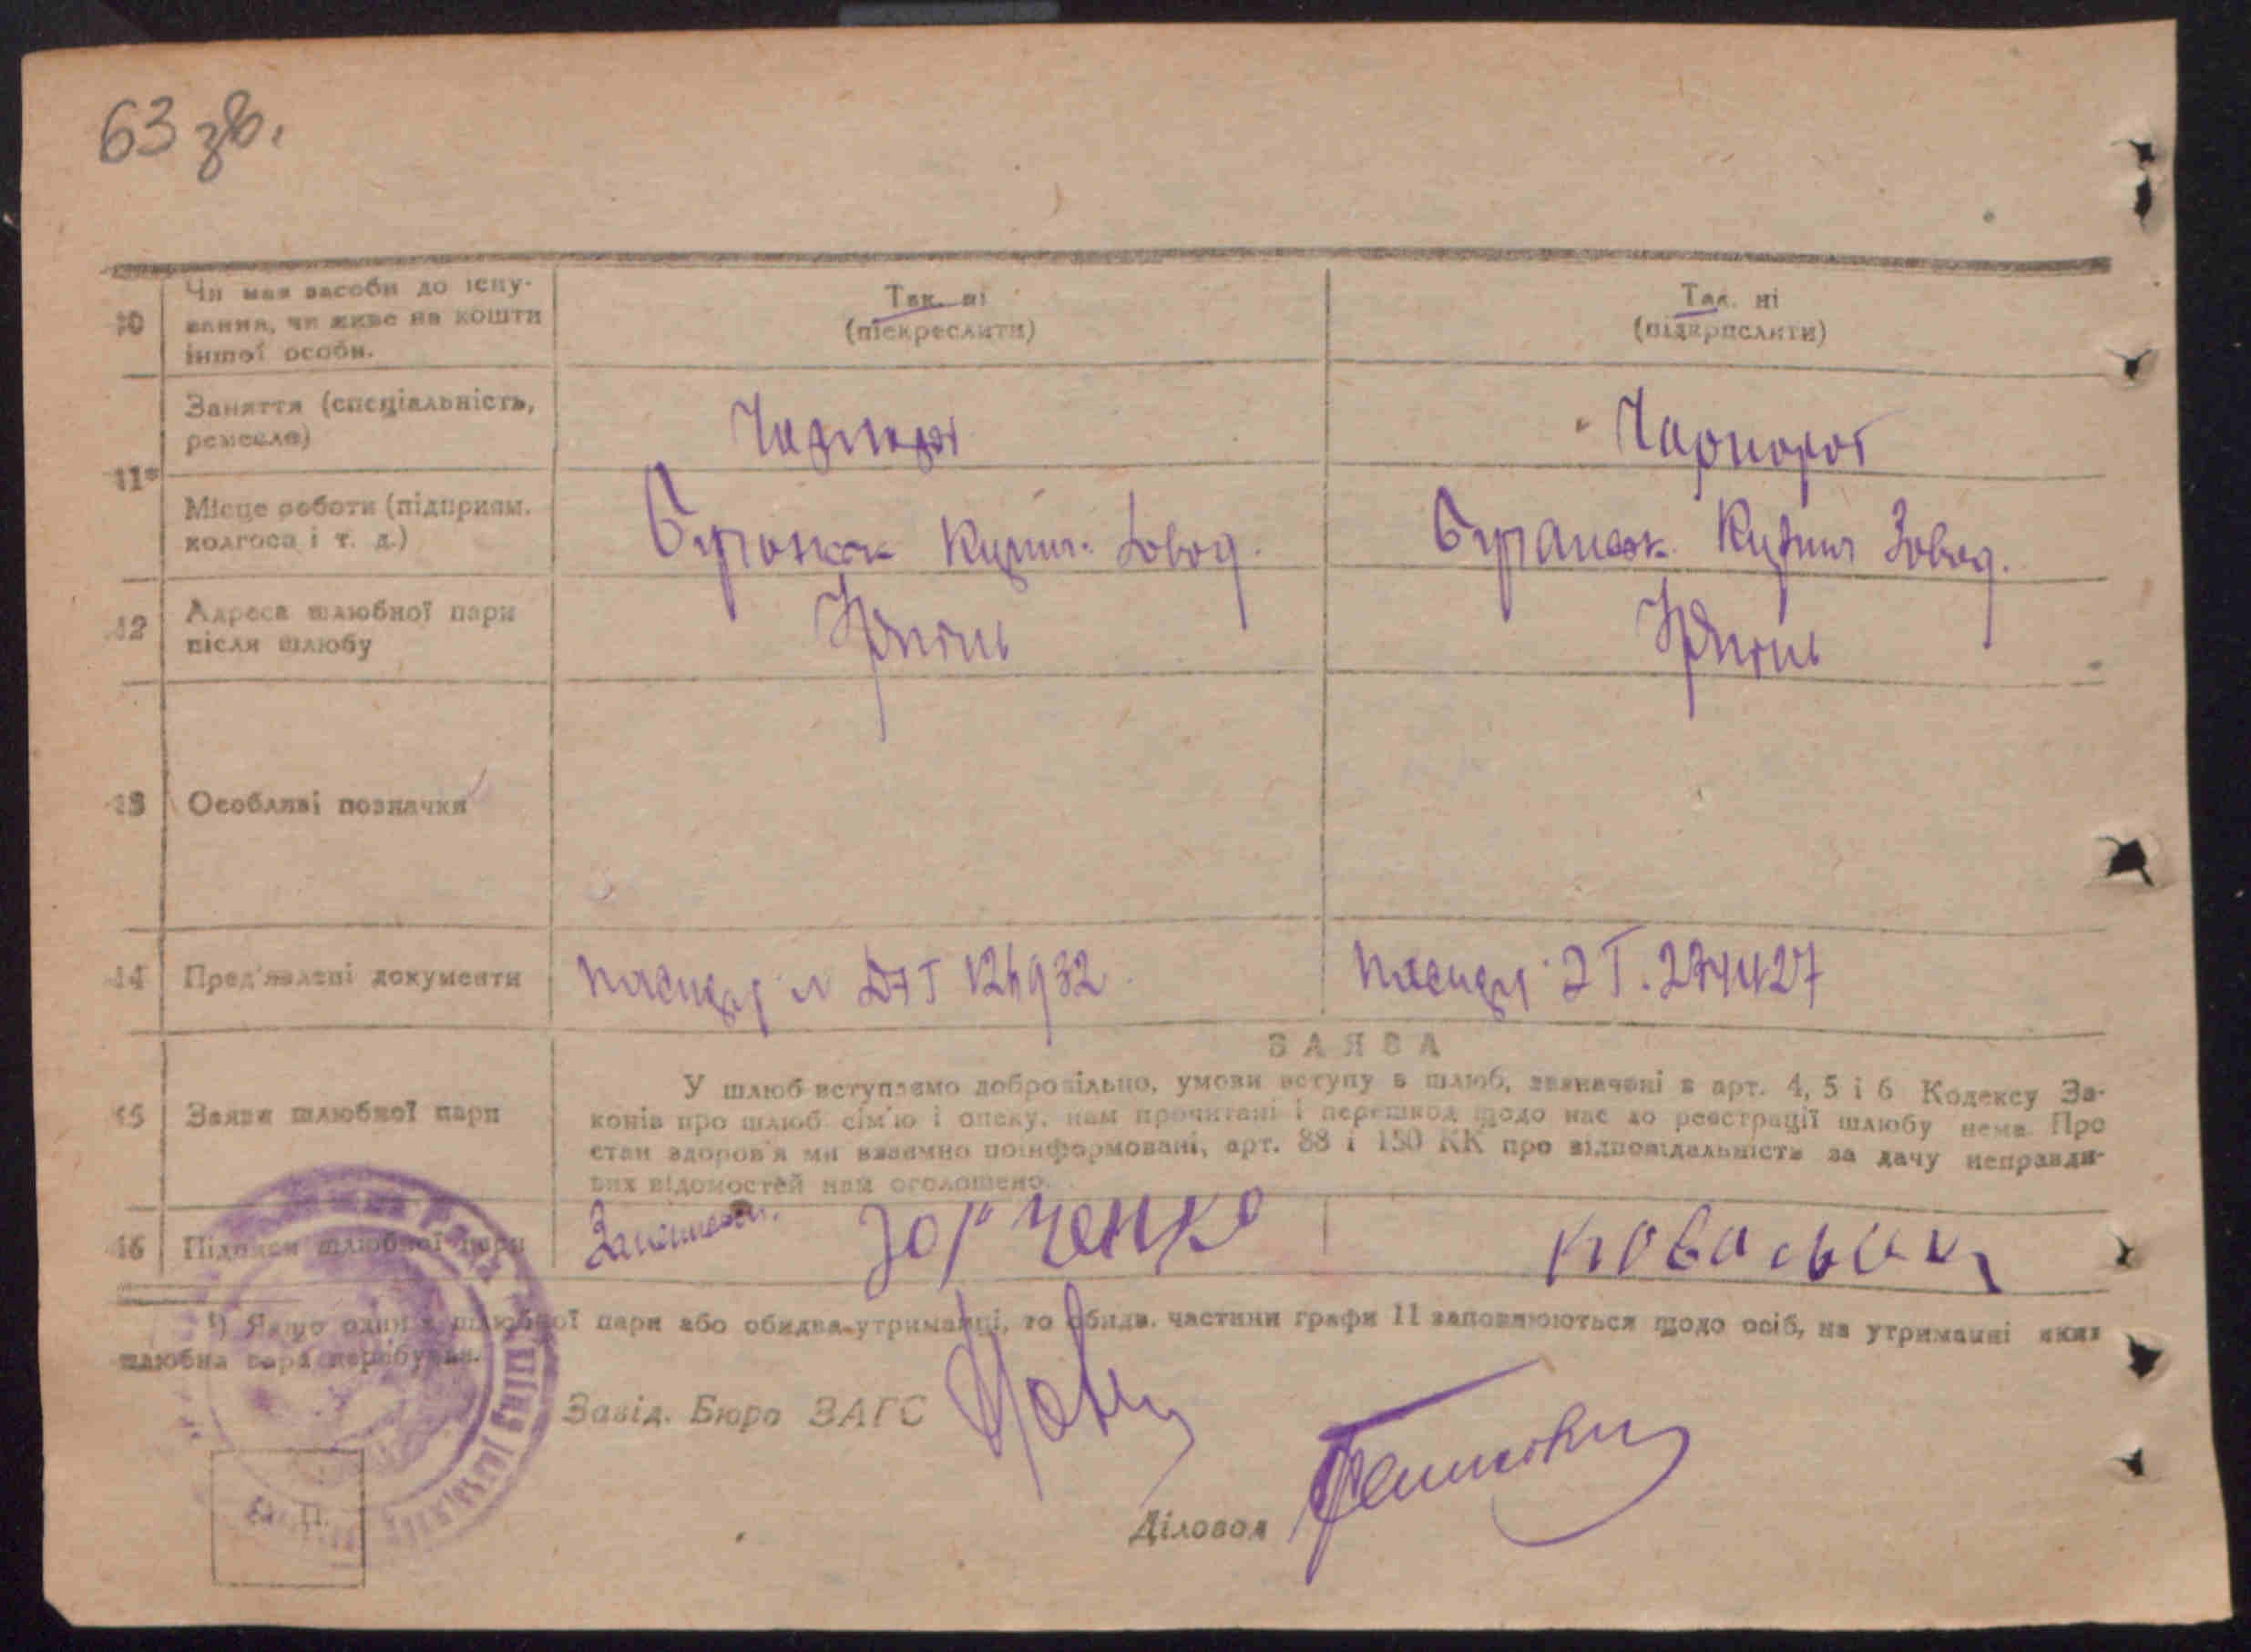 63 зв.
10 Чи має засоби до існу-
вання, чи живе на кошти
іншої особи.
Так. ні
(підкреслити)
Так. ні
(підкреслити)
11*
Заняття (спеціальність,
ремесло)
Чорнороб
Чорнороб
Місце роботи (підприєм.
колгосп і т. д.)
завод.
Завод.
12 Адреса шлюбної пари
після шлюбу
Ірпінь
Ірпінь
13 Особливі позначки
14 Пред'явлені документи
паспорт
паспорт 2 Т. 274427
ЗАЯВА
15 Заяви шлюбної пари
У шлюб вступаємо добровільно, умови вступу в шлюб, зазначені в арт. 4, 5 і 6 Кодексу За-
конів про шлюб сім'ю і опеку, нам прочитані і перешкод щодо нас до реєстрації шлюбу нема. Про
стан здоров'я ми взаємно поінформовані, арт. 88 і 150 КК про відповідальність за дачу неправди-
вих відомостей нам оголошено.
16 Підписи шлюбної пари
¹) Якщо один з шлюбної пари або обидва утриманці, то обидв. частини графи 11 заповнюються щодо осіб, на утриманні яких
шлюбна пара перебуває.
Завід. Бюро ЗАГС
Діловод
М. П.